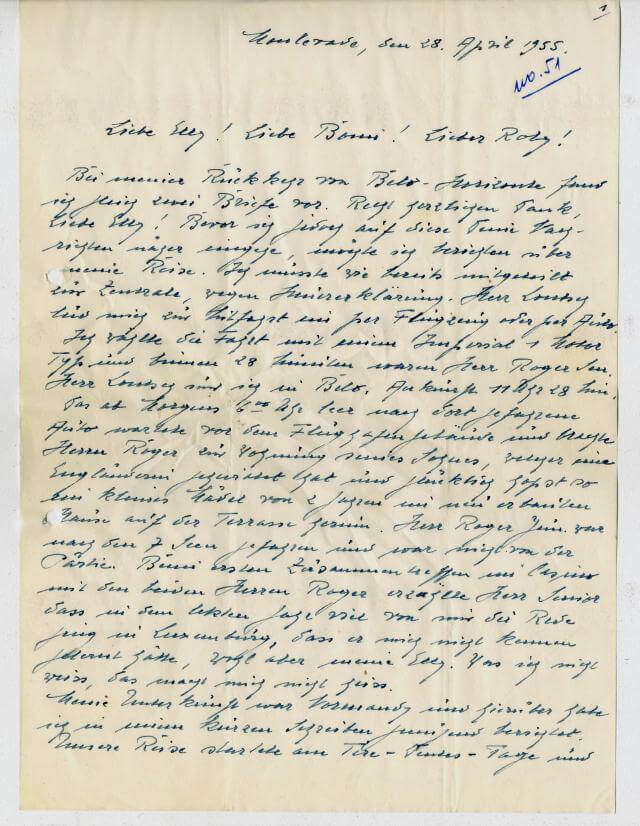 1
Monlevade, den 28. April 1955.
no. 51
Liebe Elly! Liebe Bomi! Lieber Roby!
Bei meiner Rückkehr von Belo-Horizonte fand
ich gleich zwei Briefe vor. Recht herzlichen Dank,
Liebe Elly! Bevor ich jedoch auf diese Deine Nach-
richten näher eingehe, möchte ich berichten über
meine Reise. Ich müsste wie bereits mitgeteilt
zür Zentrale, wegen Steüererklärung. Herr
lüd mich zür Mitfahrt ein per Flügzeüg oder per Aüto.
Ich wählte die Fahrt mit einem Imperial 1 Motor
Typ ünd binnen 28 Minüten waren Herr Roger Sen.
Herr ünd ich in Belo. Ankünft 11 Uhr 28 Min.
Das ab Morgens 6 00 Uhr leer nach dort gefahrene
Aüto wartete vor dem Flüghafengebäüde ünd brachte
Herrn Roger zür Wohnüng seines Sohnes, welcher eine
Engländerin geheiratet hat ünd glücklich hopst so
ein kleines Mädel von 2 Jahren im neü erbaüten
Haüse aüf der Terrasse herüm. Herr Roger Jün. war
nach den 7 Seen gefahren ünd war nicht von der
Partie. Beim ersten Züsammentreffen im Casino
mit den beiden Herren Roger erzählte Herr Senior
dass in den letzten Tage viel von mir die Rede
ging in Lüxembürg, dass er mich nicht kennen
gelernt hätte, wohl aber meine Elly. Was ich nicht
weiss, das macht mich nicht heiss.
Meine Unterkünft war Normandy ünd hierüber habe
ich in meinem kürzen Schreiben genügend berichtet.
Unsere Reise startete am Tira-Dentes-Tage ünd